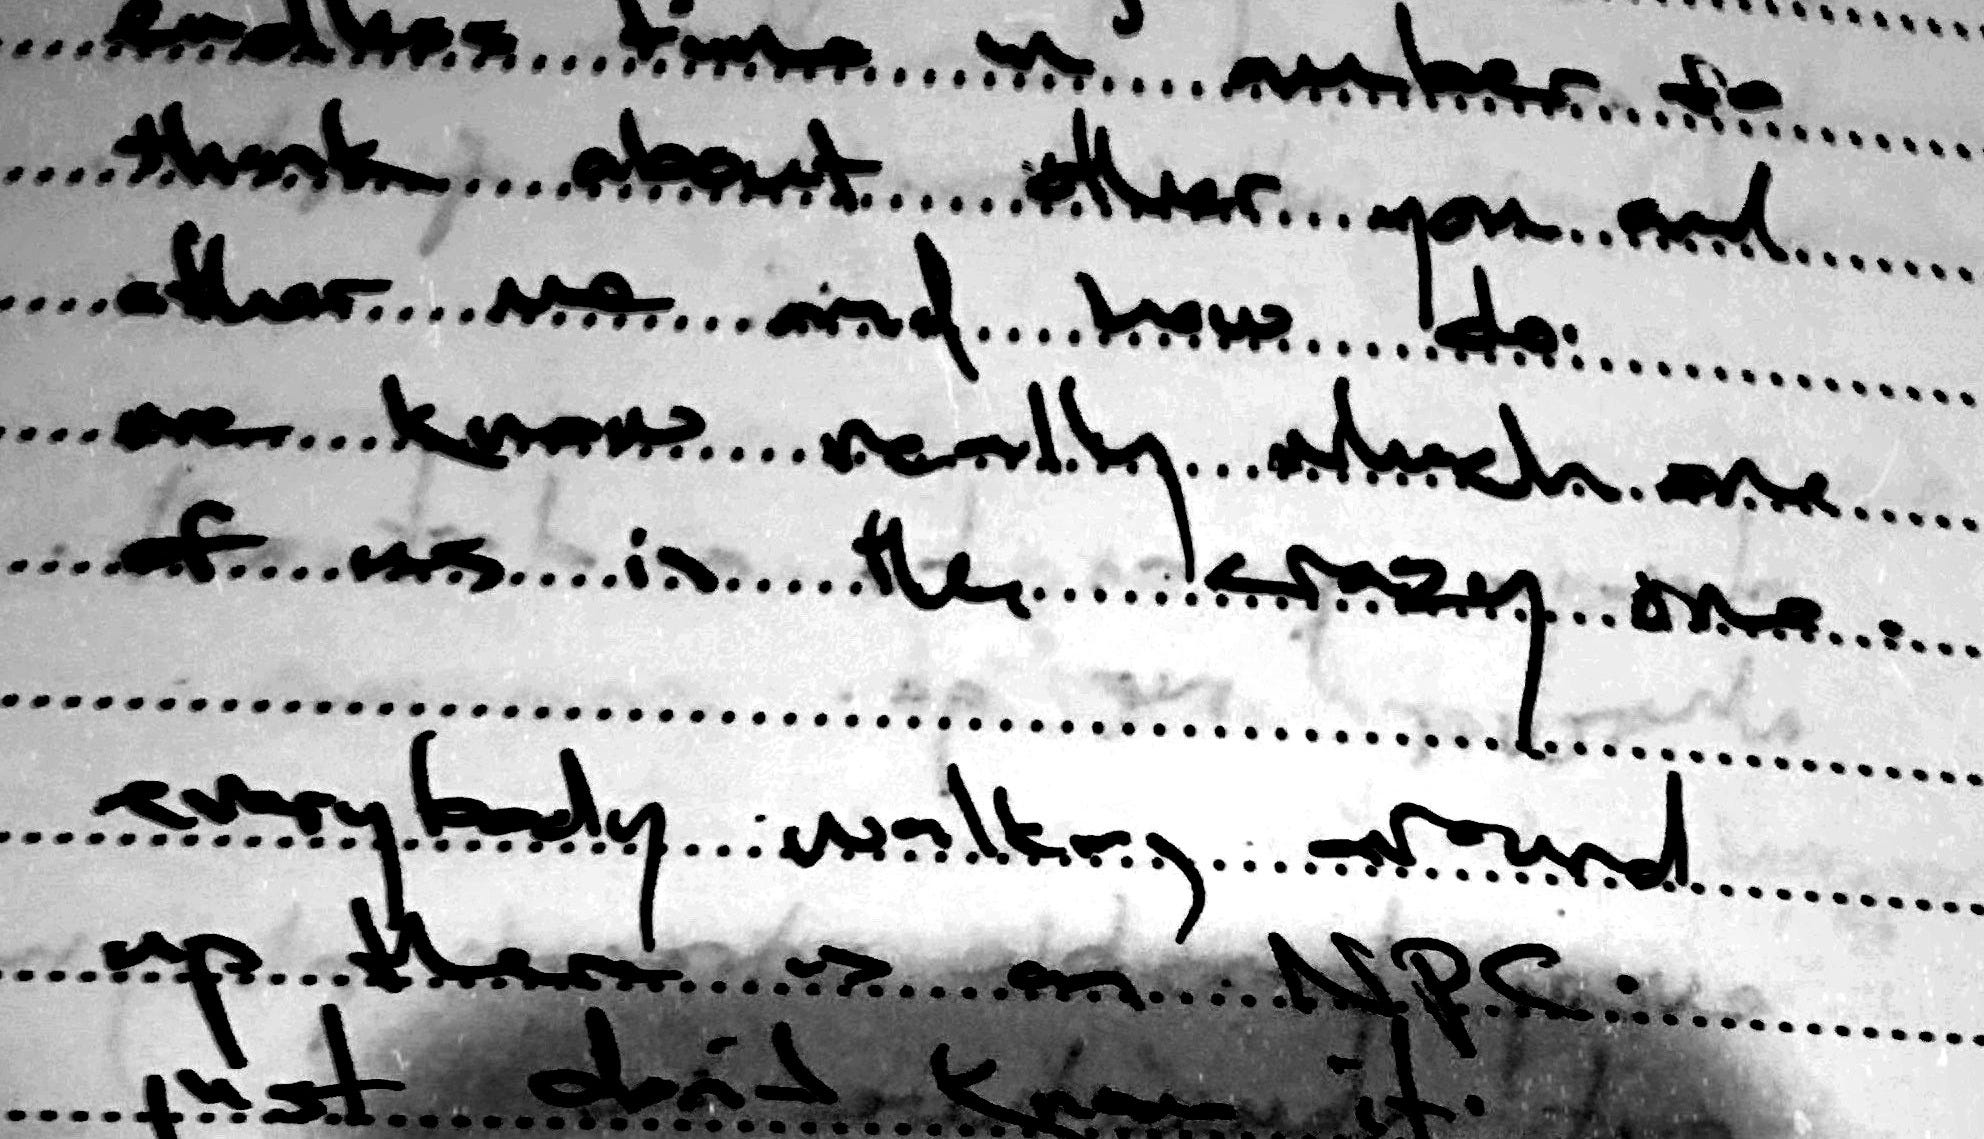 endless time in amber to
think about other you and
other me and how do
we know really which one
of us is the crazy one.
everybody walking around
up there is an NPC.
just don't know it.